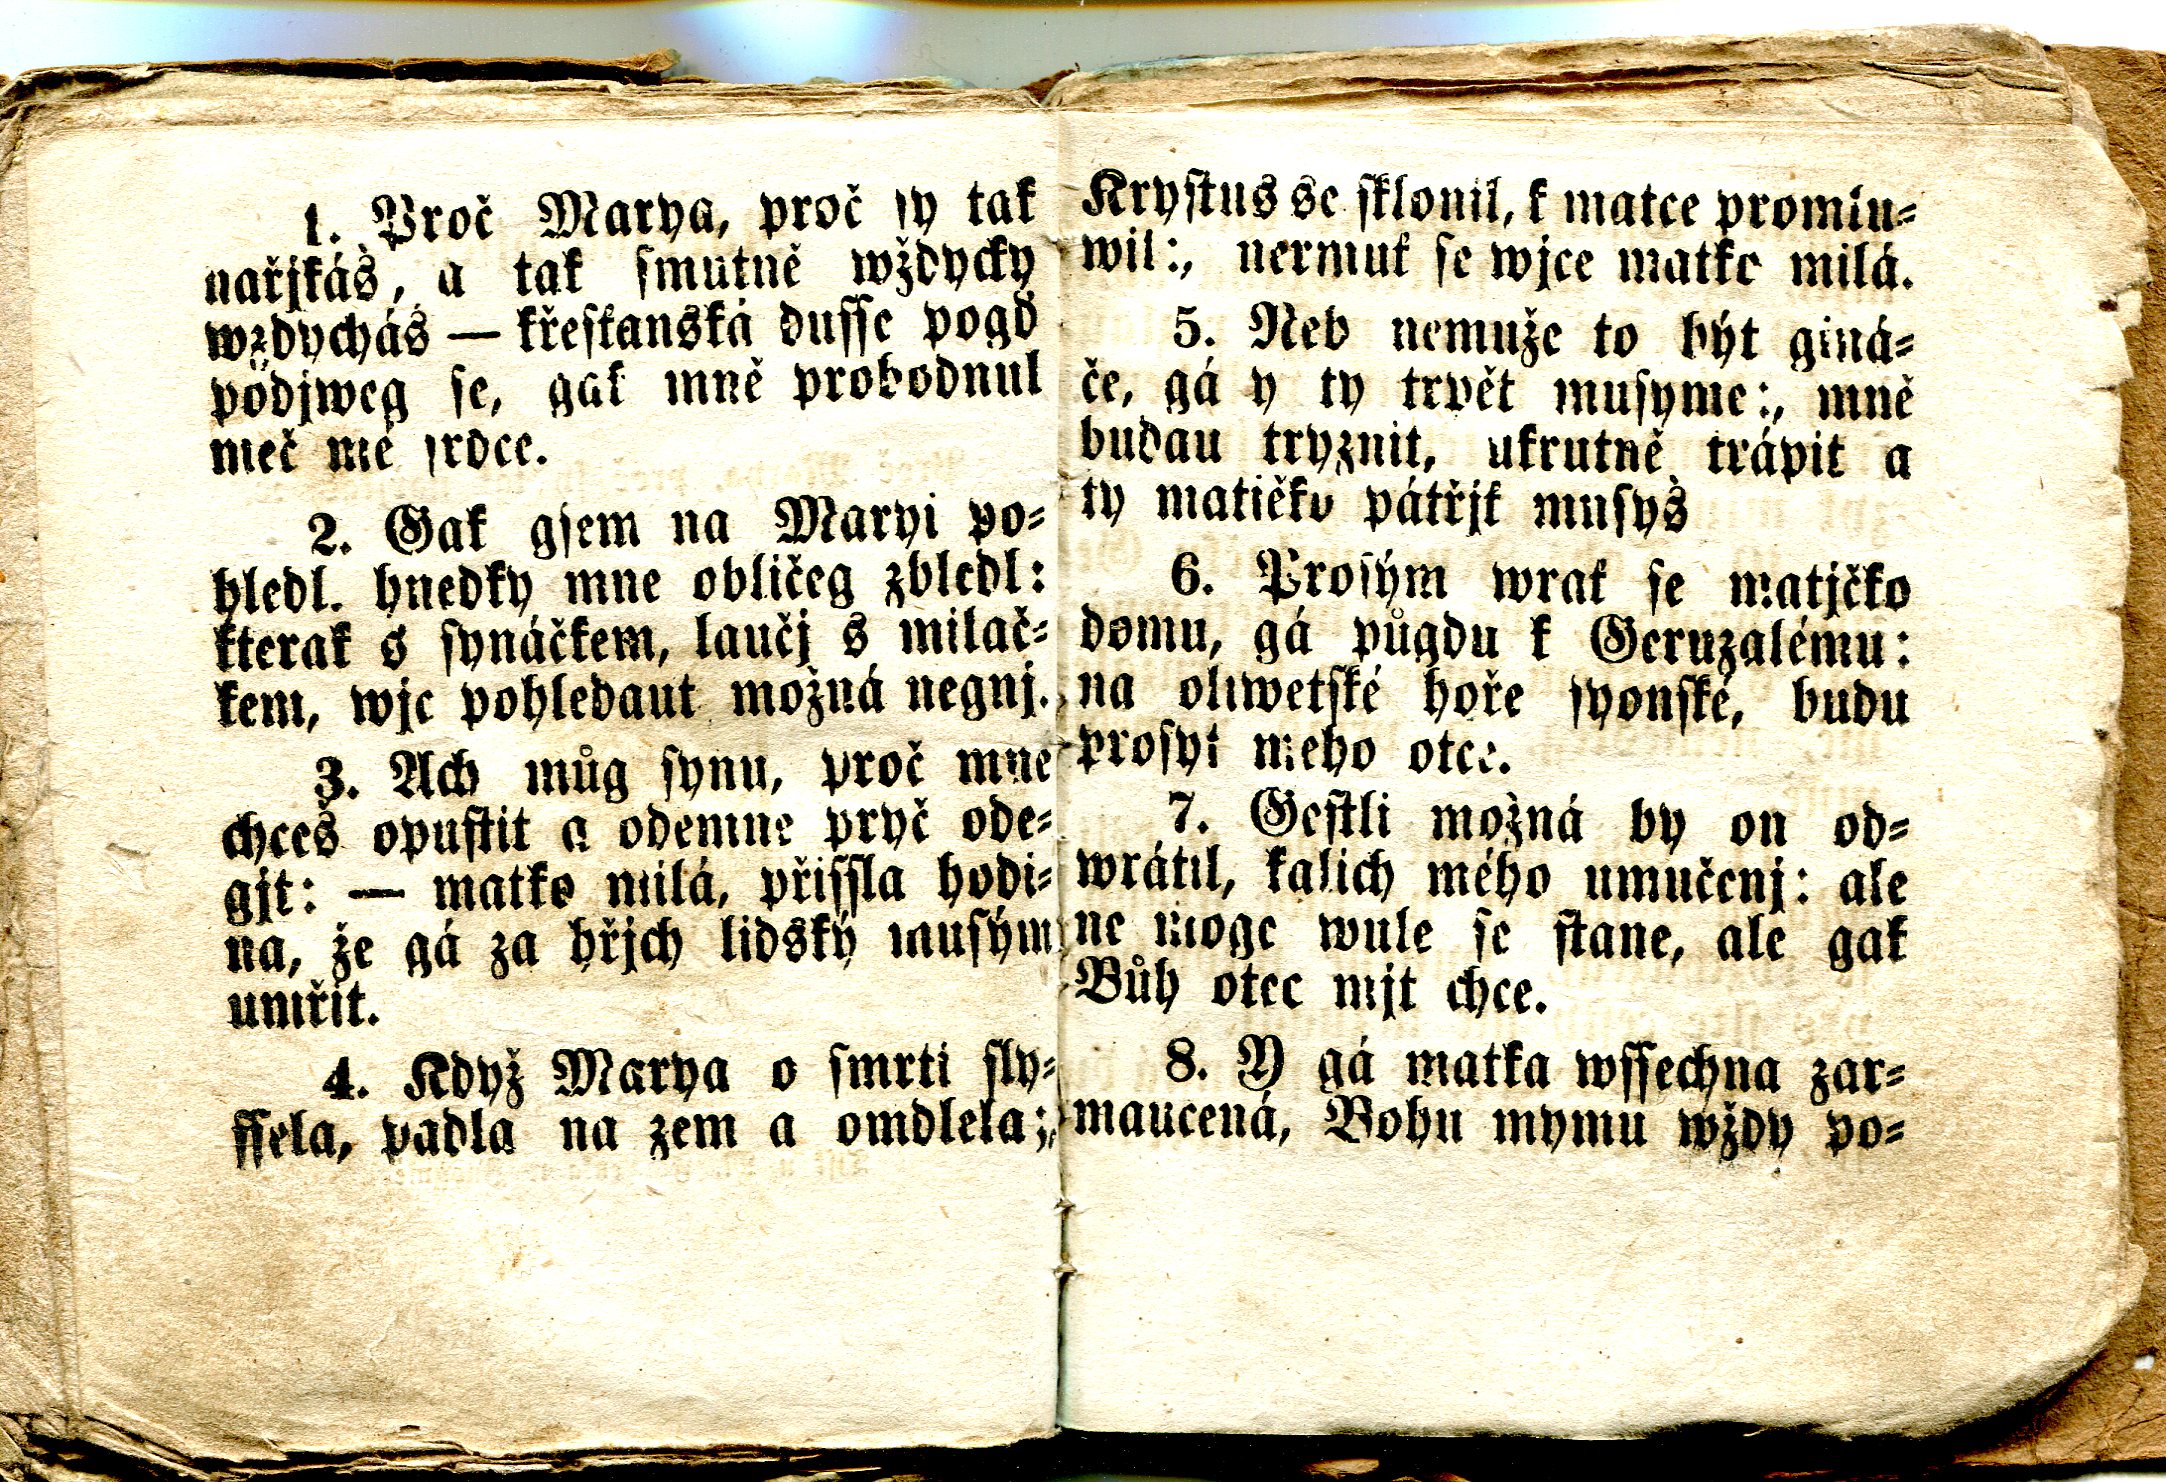 1. Proč Marya, proč sy tak
nařjkáš, a tak smutně wždycky
wzdycháš — křeskanská dusse pogď
podjweg se, gak mně probodnul
meč mé srdce.
2. Gak gsem na Maryi po=
hledl. hnedky mne obličeg zbledl:
kterak s synáčkem, laučj s milač=
kem, wjc pohledaut možná negnj.
3. Ach můg synu, proč mne
chceš opustit a odemne pryč ode=
gjt: — matko milá, přissla hodi=
na, že gá za hřjch lidský musým
umřit.
4. Když Marya o smrti sly=
ssela, padla na zem a omdlela:,
Krystus se sklonil, k matce promlu=
wil:, nermuk se wjce matko milá.
5. Neb nemuže to být giná=
če, gá y ty trpět musyme:, mně
budau tryznit, ukrutně trápit a
ty matičko pátřjk musyš
6. Prosým wrak se matjčko
domu, gá půgdu k Geruzalému:
na oliwetské hoře syonské, budu
prosyt meho otce.
7. Gestli možná by on od=
wrátil, kalich mého umučenj: ale
ne moge wule se stane, ale gak
Bůh otec mjt chce.
8. Y gá matka wssechna zar=
maucená, Bohu mymu wždy po=